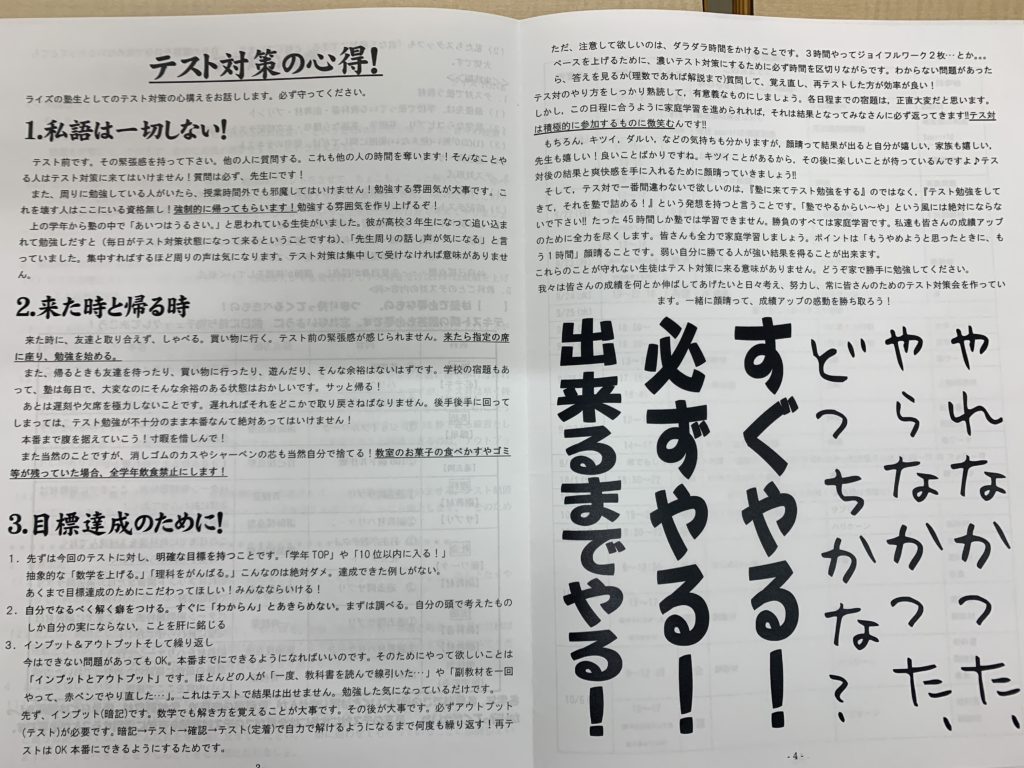 テスト対策の心得！
ライズの塾生としてのテスト対策の心構えをお話しします。必ず守ってください。
1.私語は一切しない！
テスト前です。その緊張感を持って下さい。他の人に質問する。これも他の人の時間を奪います！そんなことや
る人はテスト対策に来てはいけません！質問は必ず、先生にです！
また、周りに勉強している人がいたら、授業時間外でも邪魔してはいけません！勉強する雰囲気が大事です。こ
れを壊す人はここにいる資格無し！強制的に帰ってもらいます！勉強する雰囲気を作り上げるぞ！
上の学年から塾の中で「あいつはうるさい。」と思われている生徒がいました。彼が高校３年生になって追い込ま
れて勉強しだすと（毎日がテスト対策状態になって来るということですね）、「先生周りの話し声が気になる」と言
っていました。集中すればするほど周りの声は気になります。テスト対策は集中して受けなければ意味がありませ
ん。
2.来た時と帰る時
来た時に、友達と取り合えず、しゃべる。買い物に行く。テスト前の緊張感が感じられません。来たら指定の席
に座り、勉強を始める。
また、帰るときも友達を待ったり、買い物に行ったり、遊んだり、そんな余裕はないはずです。学校の宿題もあ
って、塾は毎日で、大変なのにそんな余裕のある状態はおかしいです。サッと帰る！
あとは遅刻や欠席を極力しないことです。遅れればそれをどこかで取り戻さねばなりません。後手後手に回って
しまっては、テスト勉強が不十分のまま本番なんて絶対あってはいけません！
本番まで腹を据えていこう！寸暇を惜しんで！
また当然のことですが、消しゴムのカスやシャーペンの芯も当然自分で捨てる！教室のお菓子の食べかすやゴミ
等が残っていた場合、全学年飲食禁止にします！
3.目標達成のために！
１．先ずは今回のテストに対し、明確な目標を持つことです。「学年TOP」や「10位以内に入る！」
抽象的な「数学を上げる。」「理科をがんばる。」こんなのは絶対ダメ。達成できた例しがない。
あくまで目標達成のためにこだわってほしい！みんなならいける！
２．自分でなるべく解く癖をつける。すぐに「わからん」とあきらめない。まずは調べる。自分の頭で考えたもの
しか自分の実にならない、ことを肝に銘じる
３．インプット＆アウトプットそして繰り返し
今はできない問題があってもOK。本番までにできるようになればいいのです。そのためにやって欲しいことは
「インプットとアウトプット」です。ほとんどの人が「一度、教科書を読んで線引いた…」や「副教材を一回
やって、赤ペンでやり直した…」。これはテストで結果は出せません。勉強した気になっているだけです。
先ず、インプット(暗記)です。数学でも解き方を覚えることが大事です。その後が大事です。必ずアウトプット
(テスト)が必要です。暗記→テスト→確認→テスト(定着)で自力で解けるようになるまで何度も繰り返す！再テ
ストはOK本番にできるようにするためです。
ただ、注意して欲しいのは、ダラダラ時間をかけることです。３時間やってジョイフルワーク２枚…とか。。。
ペースを上げるために、濃いテスト対策にするために必ず時間を区切りながらです。わからない問題があった
ら、答えを見るか(理数であれば解説まで)質問して、覚え直し、再テストした方が効率が良い！
テス対のやり方をしっかり熟読して、有意義なものにしましょう。各日程までの宿題は、正直大変だと思います。
しかし、この日程に合うように家庭学習を進められれば、それは結果となってみなさんに必ず返ってきます!!テス対
は積極的に参加するものに微笑むんです!!
もちろん、キツイ、ダルい、などの気持ちも分かりますが、頑張って結果が出ると自分が嬉しい、家族も嬉しい、
先生も嬉しい！良いことばかりですね。キツイことがあるから、その後に楽しいことが待っているんですよ♪テス
対後の結果と爽快感を手に入れるために頑張っていきましょう!!
そして、テス対で一番間違わないで欲しいのは、『塾に来てテスト勉強をする』のではなく、『テスト勉強をして
きて、それを塾で詰める！』という発想を持つと言うことです。「塾でやるからいーや」という風には絶対にならな
いで下さい!! たった45時間しか塾では学習できません。勝負のすべては家庭学習です。私達も皆さんの成績アップ
のために全力を尽くします。皆さんも全力で家庭学習しましょう。ポイントは「もうやめようと思ったときに、も
う１時間」頑張ることです。弱い自分に勝てる人が強い結果を得ることが出来ます。
これらのことが守れない生徒はテスト対策に来る意味がありません。どうぞ家で勝手に勉強してください。
我々は皆さんの成績を何とか伸ばしてあげたいと日々考え、努力し、常に皆さんのためのテスト対策会を作ってい
ます。一緒に頑張って、成績アップの感動を勝ち取ろう！
やれなかった、
やらなかった、
どっちかな？
すぐやる！
必ずやる！
出来るまでやる！
- 4 -